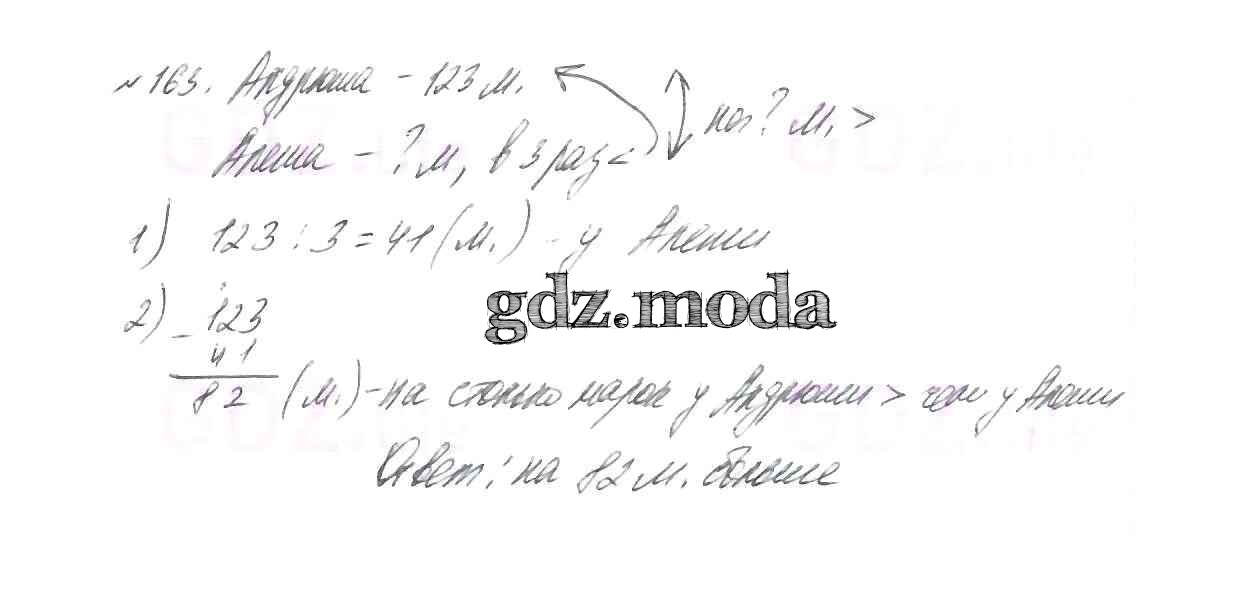 №163. Андрюша - 123 м.
на ? м. >
Алеша - ? м, в 3 раз <
1) 123 : 3 = 41 (м.) - у Алеши
gdz.moda
2) - 123
41
82 (м.) - на столько марок у Андрюши > чем у Алеши
Ответ: на 82 м. больше